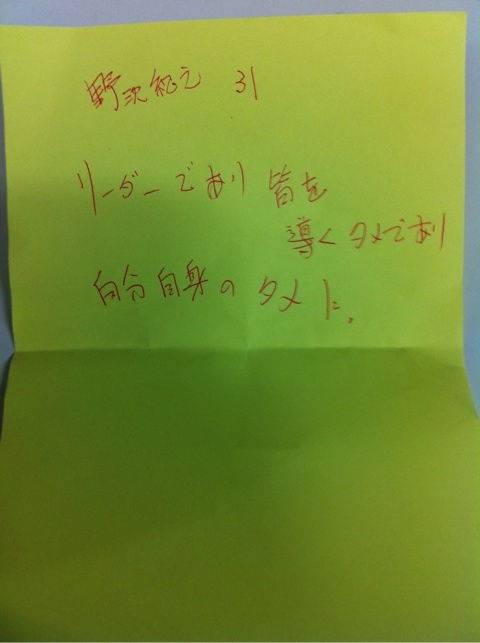 野沢 31
リーダーであり 皆を
導くタメであり
自分自身のタメに。